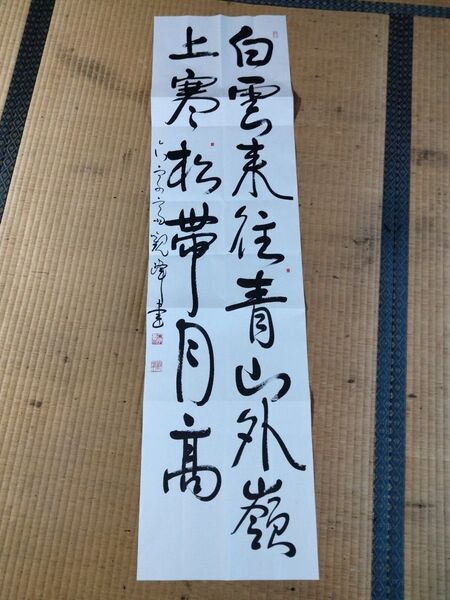 白雲来往青山外嶺
上寒松帯月高
観峰書